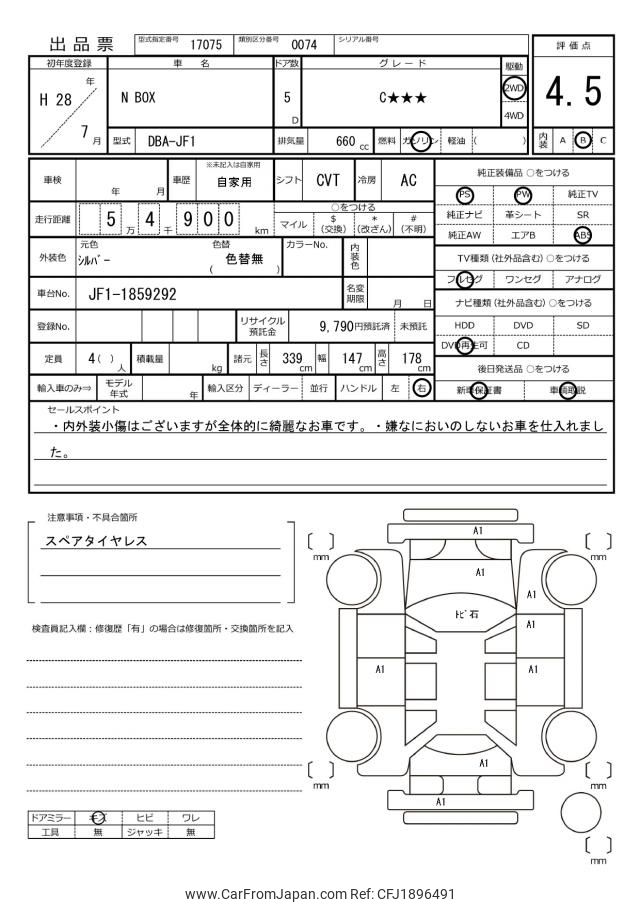 出品票
型式指定番号 17075 類別区分番号 0074 シリアル番号
評価点
4.5
内装 A B C
初年度登録 車名 ドア数 グレード 駆動
H 28 年 7 月
N BOX 5 D C★★★ 2WD 4WD
型式 DBA-JF1 排気量 660 cc 燃料 ガソリン 軽油 ( )
車検 年 月 車歴 ※未記入は自家用 自家用 シフト CVT 冷房 AC
走行距離 5 万 4 千 9 0 0 km
○をつける
マイル $(交換) *(改ざん) #(不明)
外装色 元色 シルバー 色替 ( 色替無 ) カラーNo. 内装色
車台No. JF1-1859292 名変期限 月 日
登録No. リサイクル預託金 9,790円預託済 未預託
定員 4( )人 積載量 kg 諸元 長さ 339cm 幅 147cm 高さ 178cm
輸入車のみ⇒ モデル年式 年 輸入区分 ディーラー 並行 ハンドル 左 右
純正装備品 ○をつける
PS PW 純正TV
純正ナビ 革シート SR
純正AW エアB ABS
TV種類(社外品含む) ○をつける
フルセグ ワンセグ アナログ
ナビ種類(社外品含む) ○をつける
HDD DVD SD
DVD再生可 CD
後日発送品 ○をつける
新車保証書 車輌取説
セールスポイント
・内外装小傷はございますが全体的に綺麗なお車です。・嫌なにおいのしないお車を仕入れまし
た。
注意事項・不具合箇所
スペアタイヤレス
検査員記入欄：修復歴「有」の場合は修復箇所・交換箇所を記入
ドアミラー キズ ヒビ ワレ
工具 無 ジャッキ 無
A1
mm
mm
A1
A1
トビ石
A1
A1
A1
A1
mm
mm
A1
mm
www.CarFromJapan.com Ref: CFJ1896491